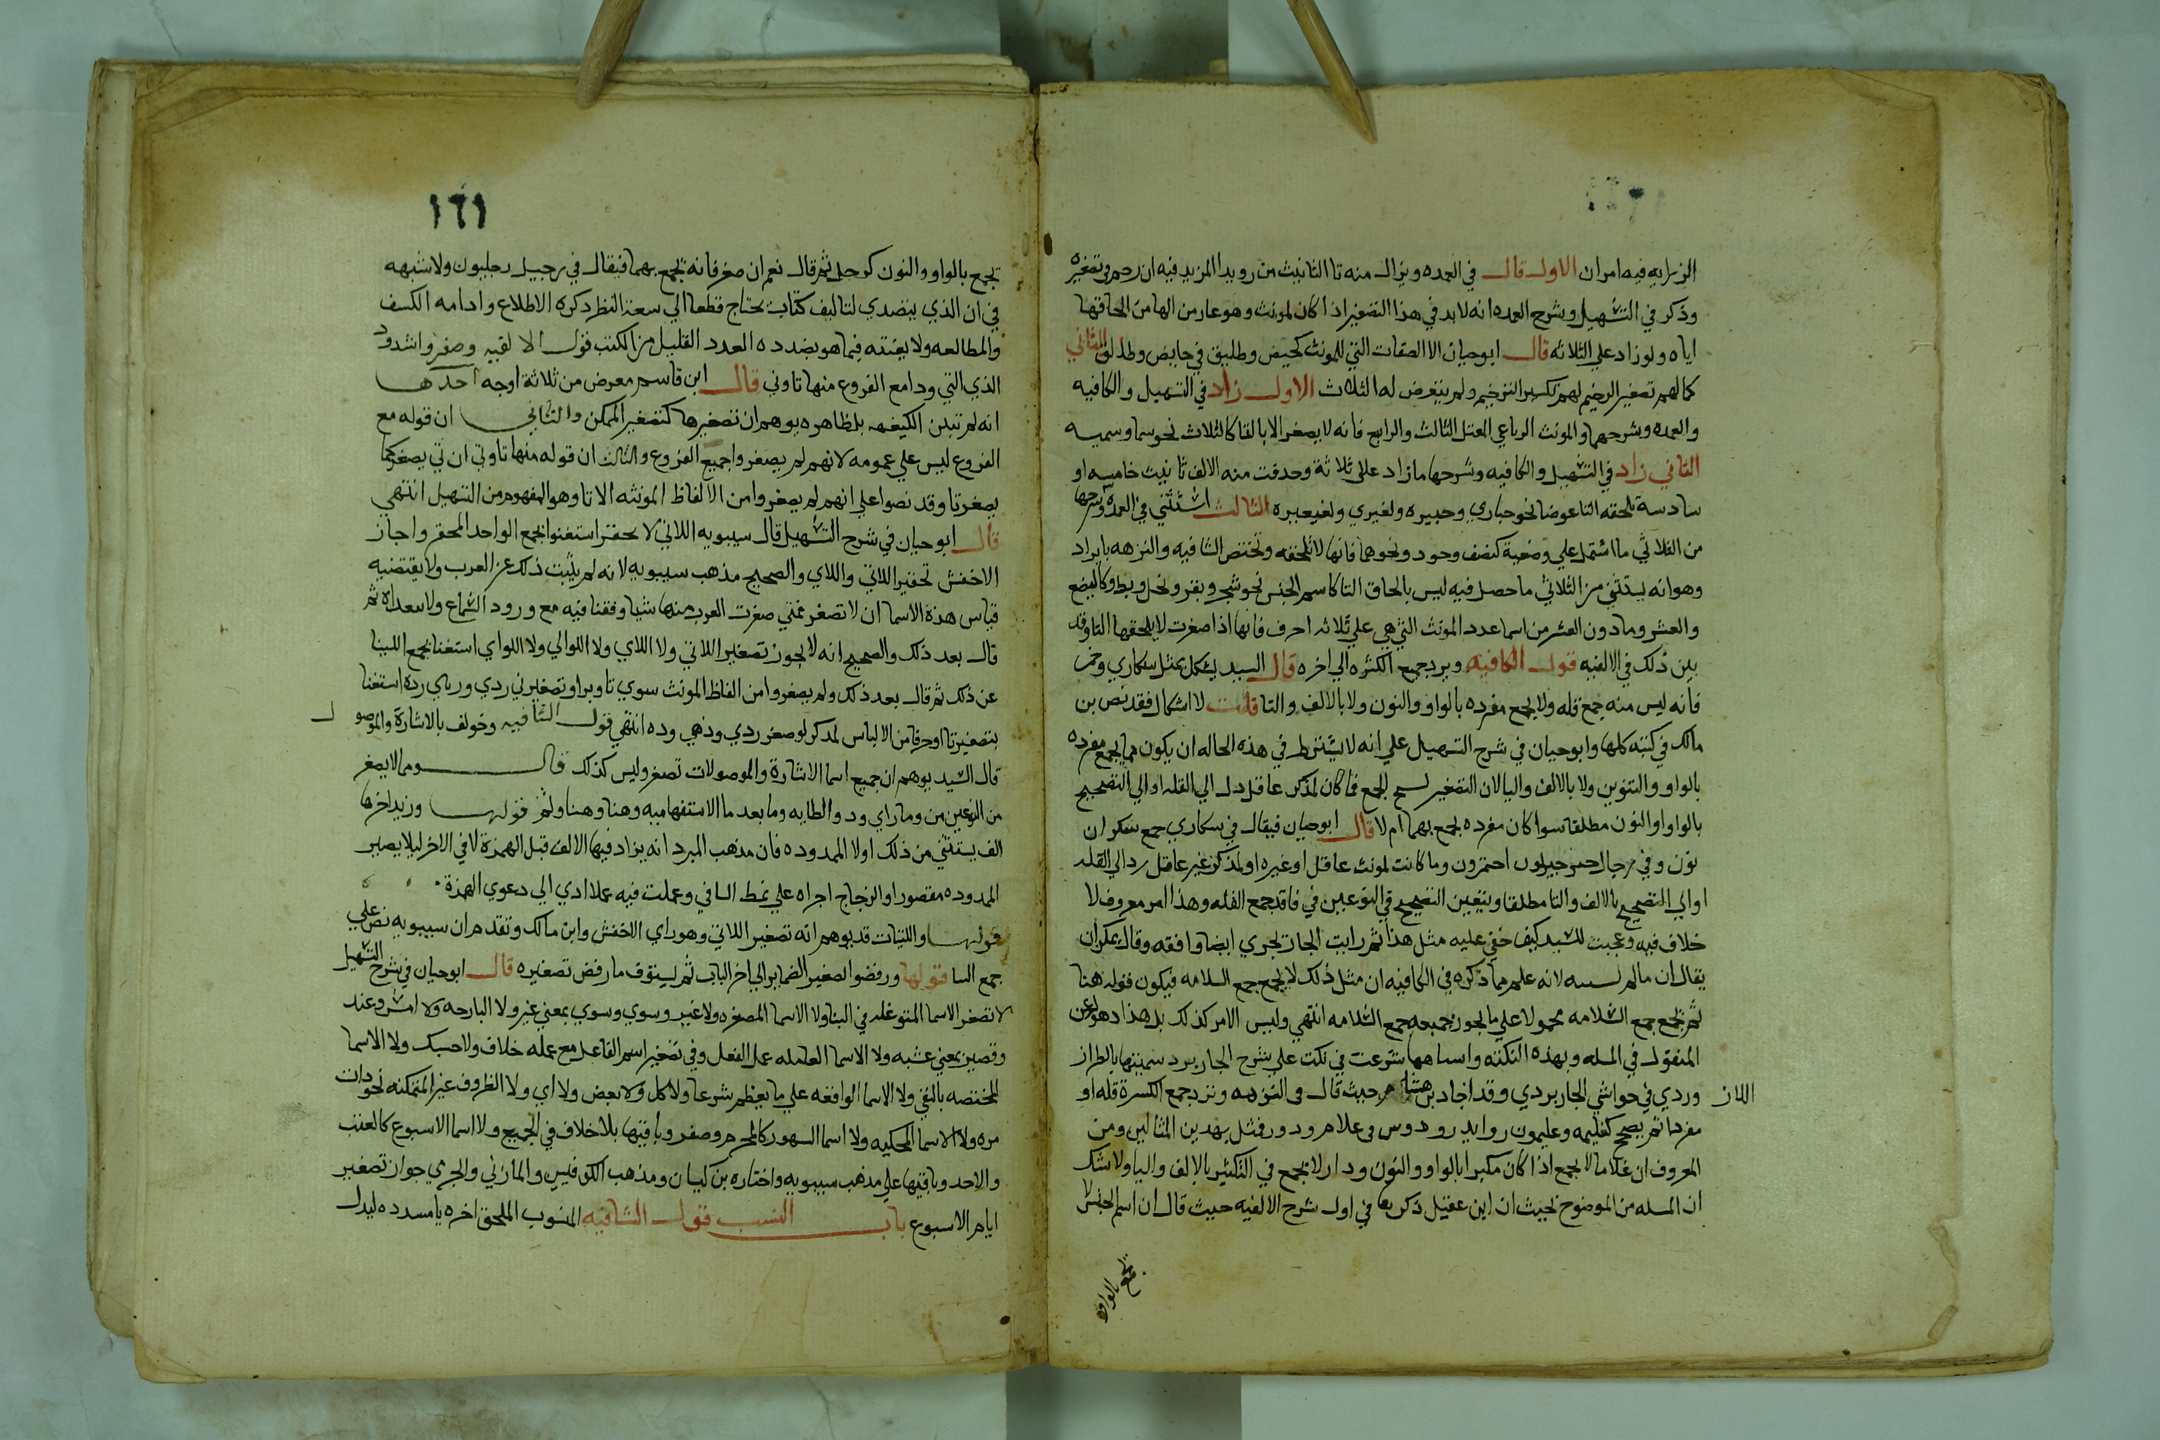 الزيادة فيه امران الاول قال في العمده ويزال منه تا التانيث من رويد المزيد فيه ان رحم في تصغيره
وذكر في التسهيل وشرح العمده انه لابد في هذا التصغير اذا كان لمونث وهو عار من الها من الحاقها
اياه ولو زاد علي الثلاثه قال ابو حيان الا الصفات التي للمونث كحيض وطليق في حايض وطالق الثاني
كما لهم تصغير الترخيم لهم تكسير الترخيم ولم يتعرض له الثلاث الاول زاد في التسهيل والكافيه
والعمده وشرحهما والمونث الرباعي المعتل الثالث والرابع فانه لا يصغر الا بالفا كالثلاث نحو سما وسميه
الثاني زاد في التسهيل والكافيه وشرحها ما زاد علي ثلاثة وحدفت منه الالف تانيث خامسه او
سادسة تلحقه التا عوضا نحو حباري وحبيره ولغيري ولغيعيره الثالث استثني في العمدة وشرحها
من الثلاثي ما اشتمل علي وضعية كنصف وحود ونحوهما فانها لا تلحقه وتختص الشافيه والنزهه بايراد
وهو انه يستثني من الثلاثي ما حصل فيه لبس بالحاق التا كاسم الجنس نحو شجر وبقر ونخل وبط وكالبضع
والعشر وما دون العشر من اسما عدد المونث التي هي علي ثلاثه احرف فانها اذا صغرت لا يلحقها التا وقد
بين ذلك في الالفيه قول الكافيه ويرد جمع الكثره الي اخره قال السيد يشكل بمثل سكاري وحمر
فانه ليس منه جمع قله ولا يجمع مفرده بالواو والنون ولا بالالف والتا قلت لا اشكال فقد نص بن
مالك في كتبه كلها وابو حيان في شرح التسهيل علي انه لا يشترط في هذه الحاله ان يكون مما يجمع مفرده
بالواو والتنوين ولا بالالف واليا لان التصغير الجمع فما كان لمذكر عاقل دل الي القله او الي التصحيح
بالواو او النون مطلقا سوا كان مفرده يجمع بهما ام لا قال ابو حيان فيقال في سكاري جمع سكران
نون وفي رجال احمر احتمرون وما كانت لمونث عاقل او غيره او لمذكر غير عاقل رد الي القله
او الي التصحيح بالالف والتا مطلقا ويتعين التصحيح في النوعين في فاقد جمع القله وهذا امر معروف لا
خلاف فيه وعجبت للسيد كيف خفي عليه مثل هذا ثم رايت الجاربردي ايضا وافقه وقال يمكن ان
يقال ان مالم لانه علم مما ذكره في الكافيه ان مثل ذلك لا يجمع جمع السلامه فيكون قوله هنا
ثم يجمع جمع السلامه محمولا علي ما يجوز جمعه جمع السلامه انتهي وليس الامر كذلك بل هذا دهول عن
المنقول في المسله وبهذه النكته واسباهها شرعت في نكت علي شرح الجاربردي سميتها بالطراز اللاز
وردي في حواشي الجاربردي وقد اجاد بن هشام حيث قال في النزهه وترد جمع الكسرة قله او
مفردا ثم يصحح كغليمه وغليمون رواديد رودوس في غلام ودور فمثل بهدين المثالين ومن
المعروف ان غلاما لا يجمع اذا كان مكبرا بالواو والنون ودار لا يجمع في التكثير بالالف واليا ولا شك
ان المسله من الموضوح بحيث ان ابن عقيل ذكرها في اول شرح الالفيه حيث قال ان اسم الجنس لا
يجمع بالواو
١٦١
تجمع بالواو والنون كرجل ثم قال نعم ان صغر فانه يجمع بهما فيقال في رجيل رجيلون ولا شبهه
في ان الذي يتصدي لتاليف كتاب يحتاج قطعا الي سعة النظر وكثرة الاطلاع وادامه الكشف
والمطالعه ولا يغنيه فيما هو بصدده العدد القليل من الكتب قول الالفيه وصغروا شدود
الذي التي ودا مع الفروع منها تا وتي قال ابن قاسم معرض من ثلاثة اوجه احدها
انه لم تبين الكيفيه بل ظاهره يوهم ان تصغيرها كتصغير الممكن والثاني ان قوله مع
الفروع ليس علي عمومه لانهم لم يصغروا جميع الفروع والثالث ان قوله منها تا وتي ان تي يصغر كما
يصغر تا وقد نصوا علي انهم لم يصغروا من الالفاظ المونثه الا تا وهو المفهوم من التسهيل انتهي
قال ابو حيان في شرح التسهيل قال سيبويه اللاتي لا تحقر استغنوا بجمع الواحد المحقر واجاز
الاخفش تحقير اللاتي واللاي والصحيح مذهب سيبويه لانه لم يثبت ذلك عن العرب ولا يقتضيه
قياس هذه الاسما ان لا تصغر فمتي صغرت العرب منها شيا وقفنا فيه مع ورود السماع ولا نتعداه ثم
قال بعد ذلك والصحيح انه لا يجوز تصغير اللاتي ولا اللاي ولا اللوالي ولا اللواي استغنا بجمع اللتيا
عن ذلك ثم قال بعد ذلك ولم يصغروا من الفاظ المونث سوي تا وتركوا تصغير تي ردي ورياي رده استغنا
بتصغير تا او حوفا من الالباس لمدكر لو صغر ردي وذهي وده انتهي قول الشافيه وخولف بالاشارة والموصول
قال السيد يوهم ان جميع اسما الاشارة والموصولات تصغر وليس كذلك قال ومما لا يصغر
من النوعين من وما واي ودو الطايه وما بعد ما الاستفهاميه وهنا وهنا وثم قولها وزيد اخرها
الف يستثني من ذلك اولا الممدوده فان مذهب المبرد انه يزاد فيها الالف قبل الهمزة لا في الاخر ليلا يصير
الممدوده مقصورا والزجاج اجراه علي نمط الباقي وعملت فيه عملا ادي الي دعوي الهمزة
قولها واللتيات قد يوهم انه تصغير اللاتي وهو راي الاخفش وابن مالك وتقدم ان سيبويه نص علي
جمع اللتيا قولها ورفضوا تصغير الضماير الي اخر الباب ثم يستوف ما رفض تصغيره قال ابو حيان في شرح التسهيل
لا تصغر الاسما المتوغله في البنا ولا الاسما المصغره ولا غير وسوي وسوي بمعني غير ولا البارحه ولا امس وعند
وقصير بمعني عشيه ولا الاسما العامله عمل الفعل وفي تصغير اسم الفاعل مع عمله خلاف ولا حسبك ولا الاسما
المختصه بالنفي ولا الاسما الواقعه علي ما يعظم شرعا ولا كل ولا بعض ولا اي ولا الظروف غير المتمكنه نحو دات
مره ولا الاسما المحكيه ولا اسما الشهور كالمحرم وصفر وباقيها بلا خلاف في الجميع ولا اسما الاسبوع كالسبت
والاحد وباقيها علي مذهب سيبويه واختاره بن كيسان ومذهب الكوفيين والمازني والجرمي جواز تصغير
ايام الاسبوع باب النسب قول الشافيه المنسوب الملحق اخره يا مشدده ليدل